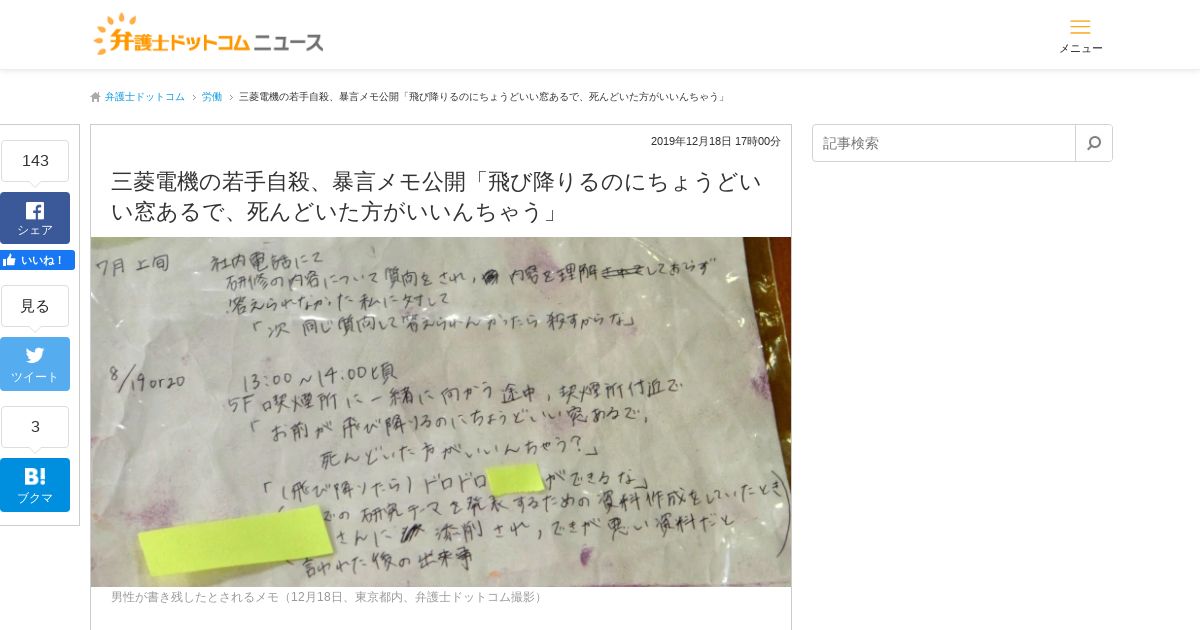 弁護士ドットコム ニュース
メニュー
弁護士ドットコム > 労働 > 三菱電機の若手自殺、暴言メモ公開「飛び降りるのにちょうどいい窓あるで、死んどいた方がいいんちゃう」
143
シェア
いいね！
見る
ツイート
3
B!
ブクマ
2019年12月18日 17時00分
三菱電機の若手自殺、暴言メモ公開「飛び降りるのにちょうどい
い窓あるで、死んどいた方がいいんちゃう」
7月上旬 社内電話にて
研修の内容について質問をされ, 内容を理解しておらず
答えられなかった私に対して
「次 同じ質問して答えられんかったら殺すからな」
8/19or20 13:00〜14:00頃
5F 喫煙所に一緒に向かう途中, 喫煙所付近で
「お前が飛び降りるのにちょうどいい窓あるで,
死んどいた方がいいんちゃう?」
「(飛び降りたら)ドロドロ ができるな」
での研究テーマを発表するための資料作成をしていたとき
さんに 添削され, できが悪い資料だと
言われた後の出来事
男性が書き残したとされるメモ（12月18日、東京都内、弁護士ドットコム撮影）
記事検索